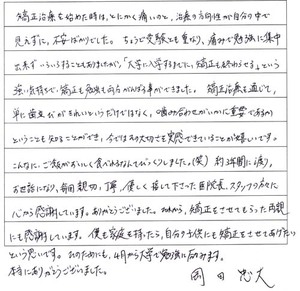 矯正治療を始めた時は、とにかく痛いのと、治療の方向性が自分の中で
見えずに、不安ばかりでした。ちょうど受験とも重なり、痛みで勉強に集中
出来ずイライラすることもありましたが、「大学に入学するまでに、矯正も終わらせる」という
強い気持ちで、矯正も勉強も両方がんばる事ができました。矯正治療を通じて、
単に歯並びがきれいというだけではなく、噛み合わせがいかに重要であるか
ということも知ることができ、今ではその大切さを実感できていることが嬉しいです。
こんなに、ご飯がおいしく食べれるなんてびっくりしました。(笑) 約3年間に渡り、
お世話になり、毎回親切、丁寧、優しく接して下さった医院長、スタッフの方々に
心から感謝しています。ありがとうございました。それから、矯正をさせてもらった両親
にも感謝しています。僕も家庭を持ったら、自分の子供にも矯正をさせてあげたい
という思いです。そのためにも、4月から大学で勉強に励みます。
本当にありがとうございました。